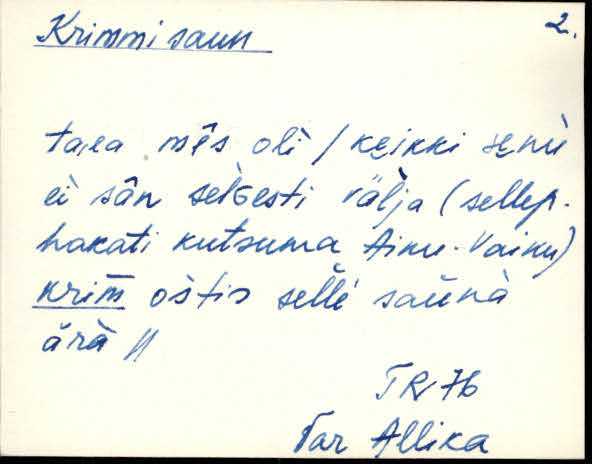 Krimmi saun 2.
taea mēs oli / keikki senu
ei sān selGesti välja (sellep.
hakati kutsuma Aiku-Vaiku)
krim̄ ostis selle sauna
ärà //
TR 76
Tar Allika